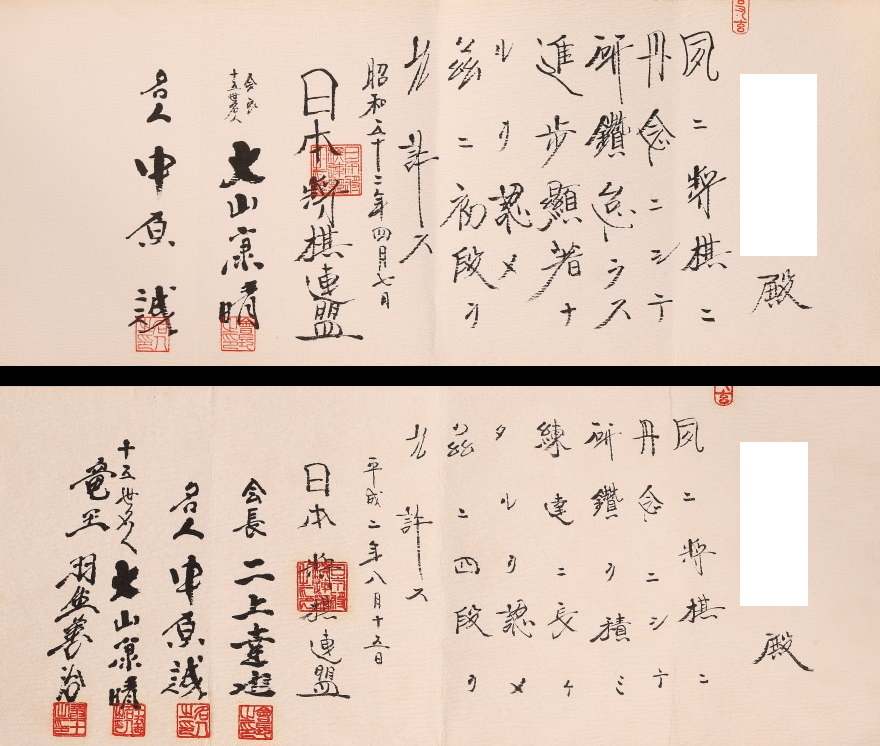 殿
夙ニ将棋ニ
丹念ニシテ
研鑽怠ラス
進歩顕著ナ
ルヲ認メ
茲ニ初段ヲ
允許ス
昭和五十二年四月七日
日本将棋連盟
会長
十五世名人
大山康晴
名人
中原誠
殿
夙ニ将棋ニ
丹念ニシテ
研鑽ヲ積ミ
練達ニ長ケ
タルヲ認メ
茲ニ四段ヲ
允許ス
平成二年八月十五日
日本将棋連盟
会長
二上達也
名人
中原誠
十五世名人
大山康晴
竜王
羽生善治